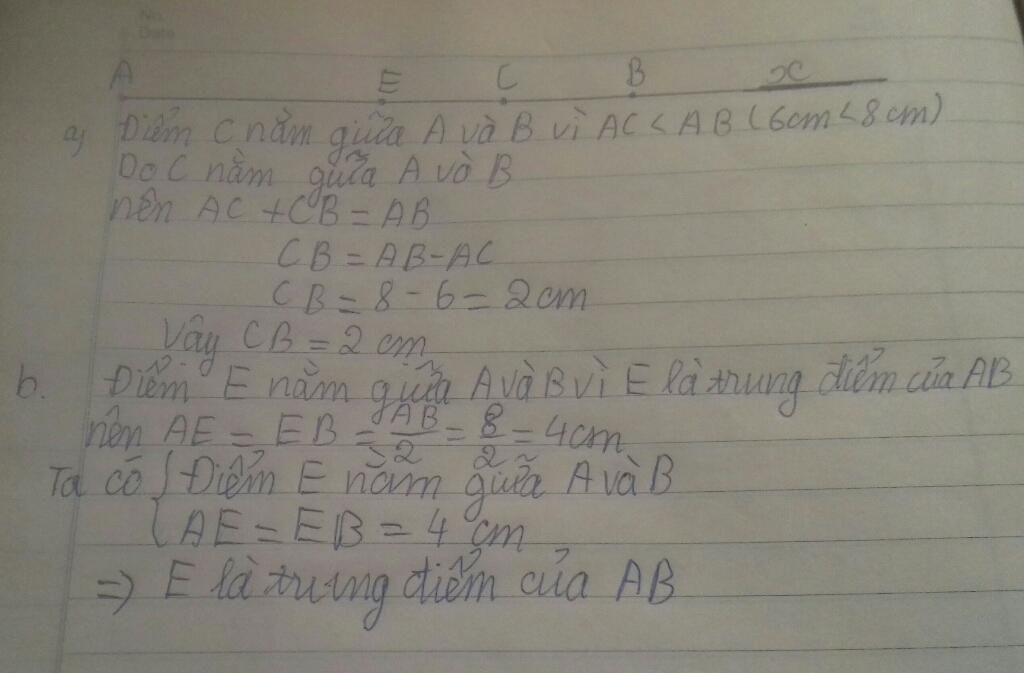 No.
Date
A E C B x
a) Điểm C nằm giữa A và B vì AC < AB (6cm < 8 cm)
Do C nằm giữa A và B
nên AC + CB = AB
CB = AB - AC
CB = 8 - 6 = 2 cm
Vậy CB = 2 cm
b. Điểm E nằm giữa A và B vì E là trung điểm của AB
nên AE = EB = AB/2 = 8/2 = 4cm
Ta có { Điểm E nằm giữa A và B
{ AE = EB = 4 cm
=> E là trung điểm của AB